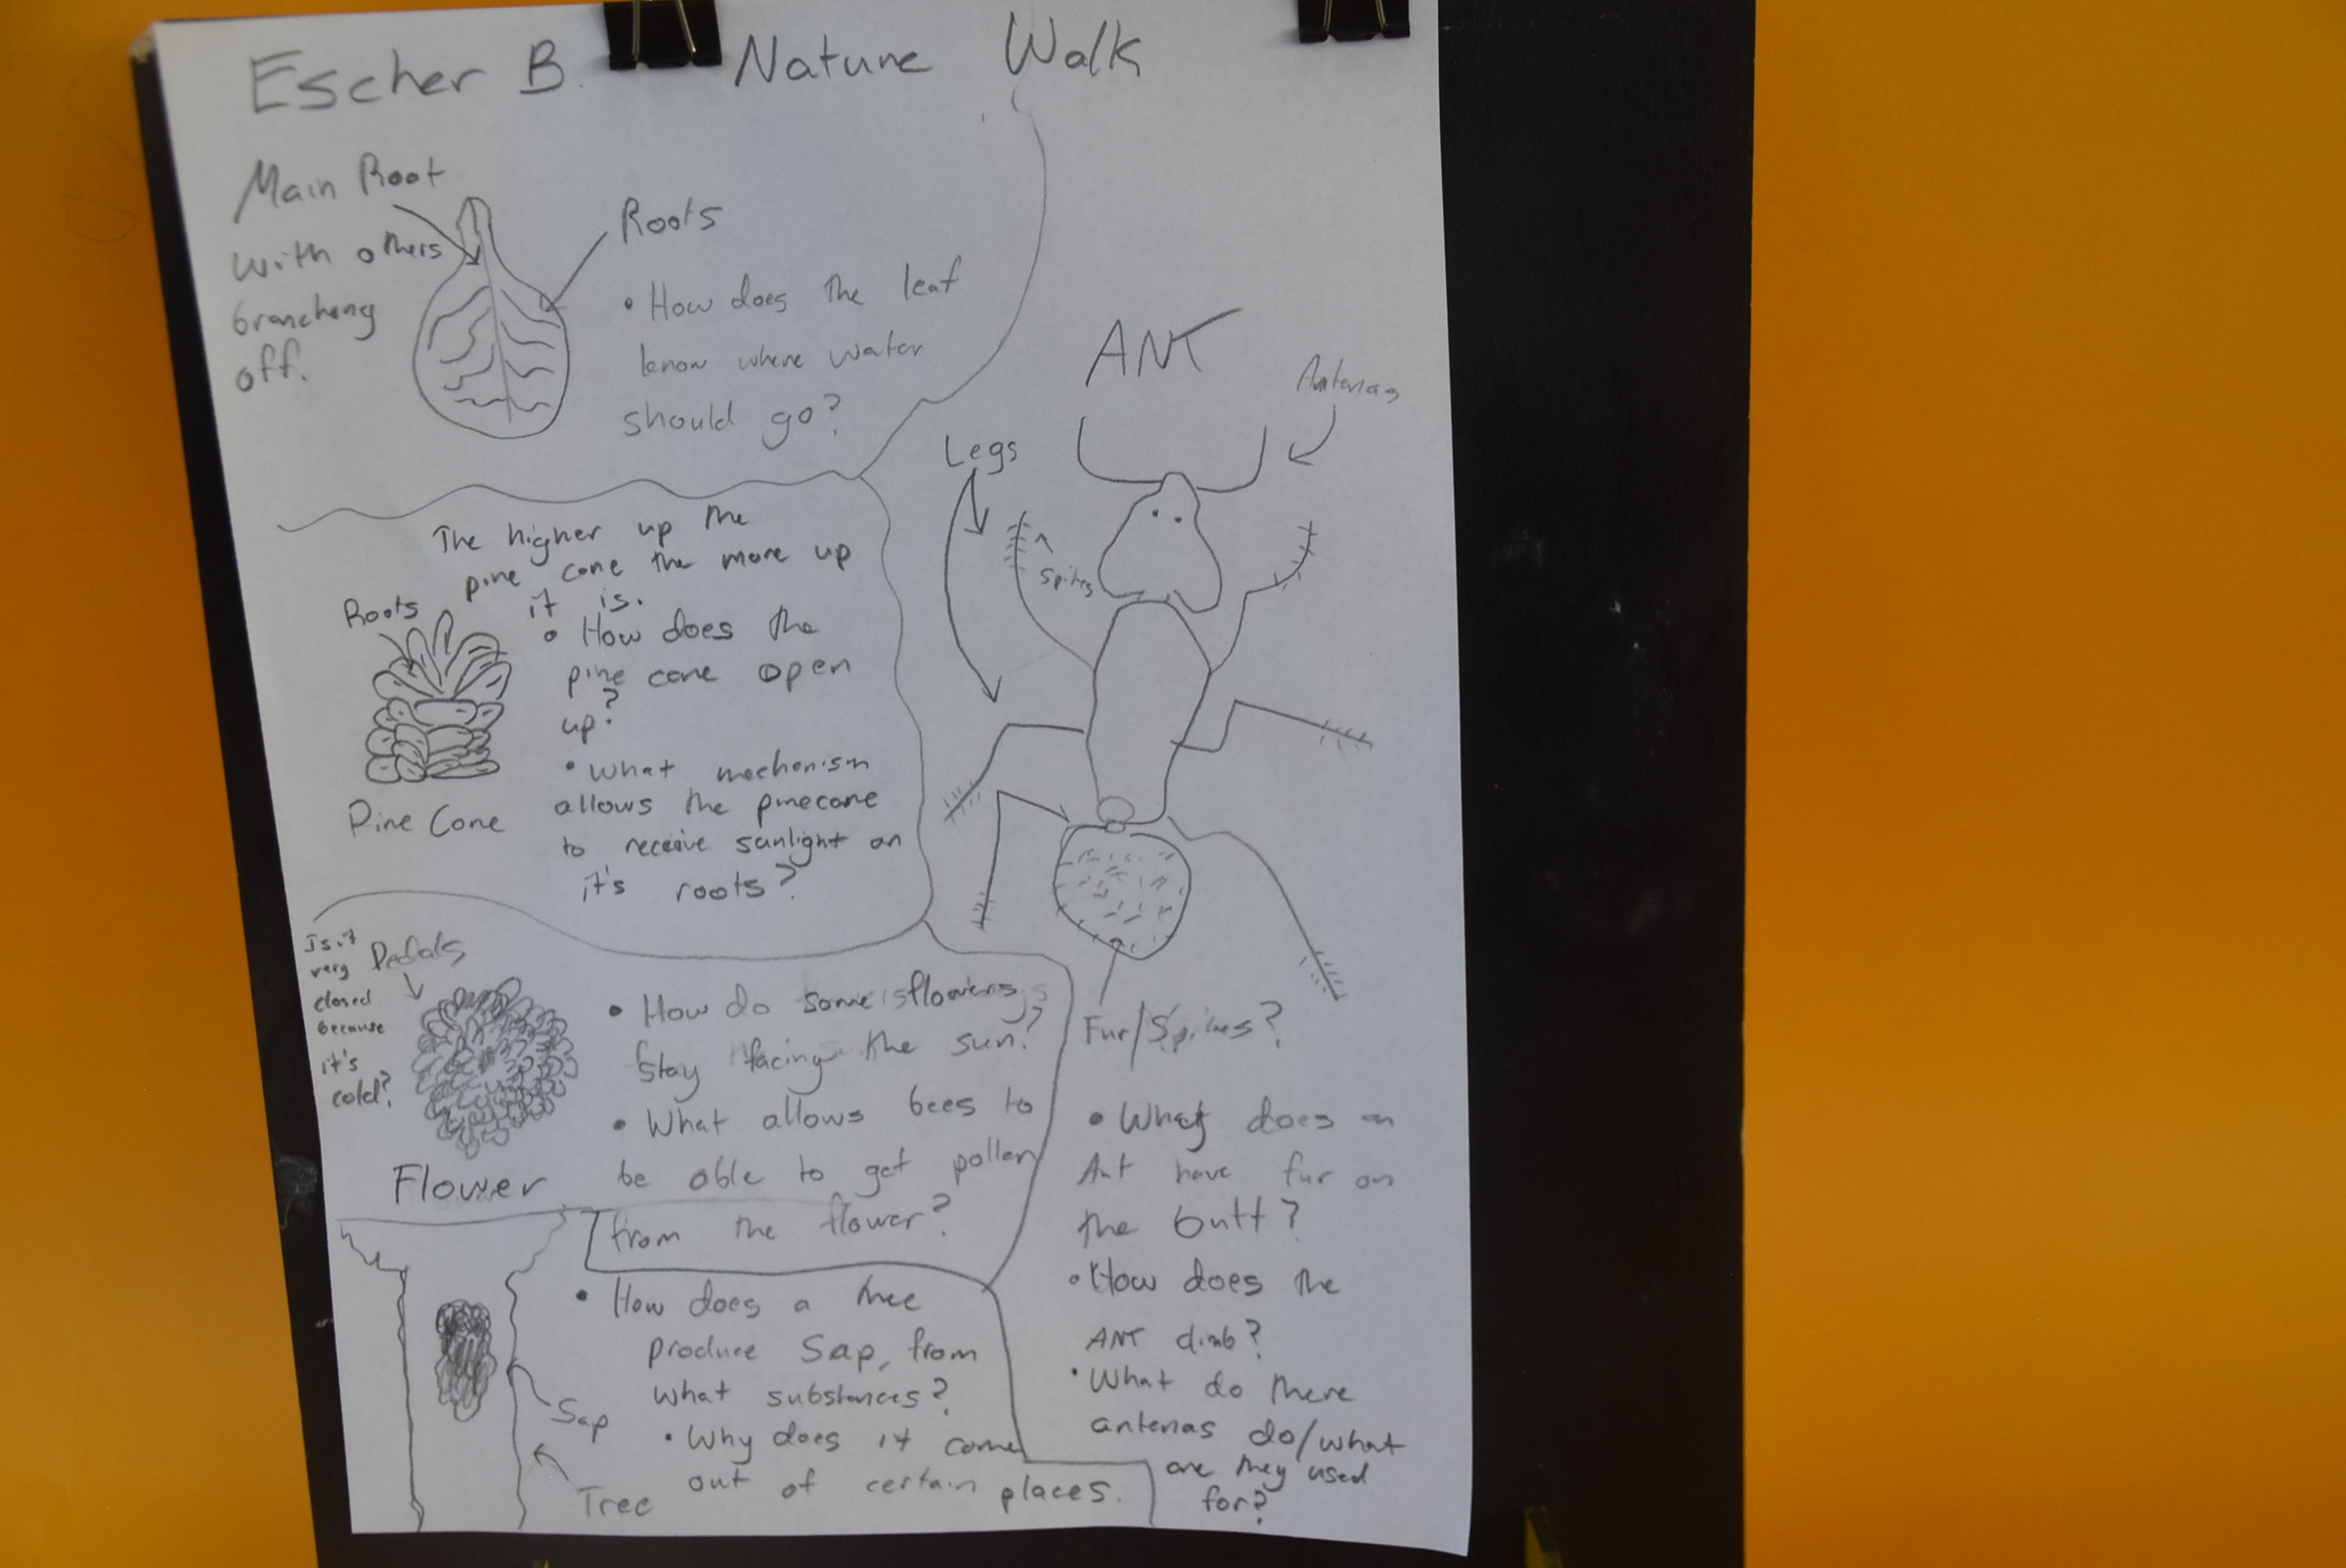 Escher B. Nature Walk
Main Root
with others
branching
off.
Roots
• How does the leaf
know where water
should go?
The higher up the
pine cone the more up
it is.
Roots
• How does the
pine cone open
up?
• What mechenism
allows the pinecone
to receive sunlight on
it's roots?
Pine Cone
Is it
very
closed
because
it's
cold?
Pedals
• How do some flowers
stay facing the sun?
• What allows bees to
be able to get pollen
from the flower?
Flower
• How does a tree
produce Sap, from
what substances?
• Why does it come
out of certain places.
Sap
Tree
ANT
Antenas
Legs
Spikes
Fur/Spikes?
• What does an
Ant have fur on
the butt?
• How does the
ANT climb?
• What do there
antenas do/what
are they used
for?